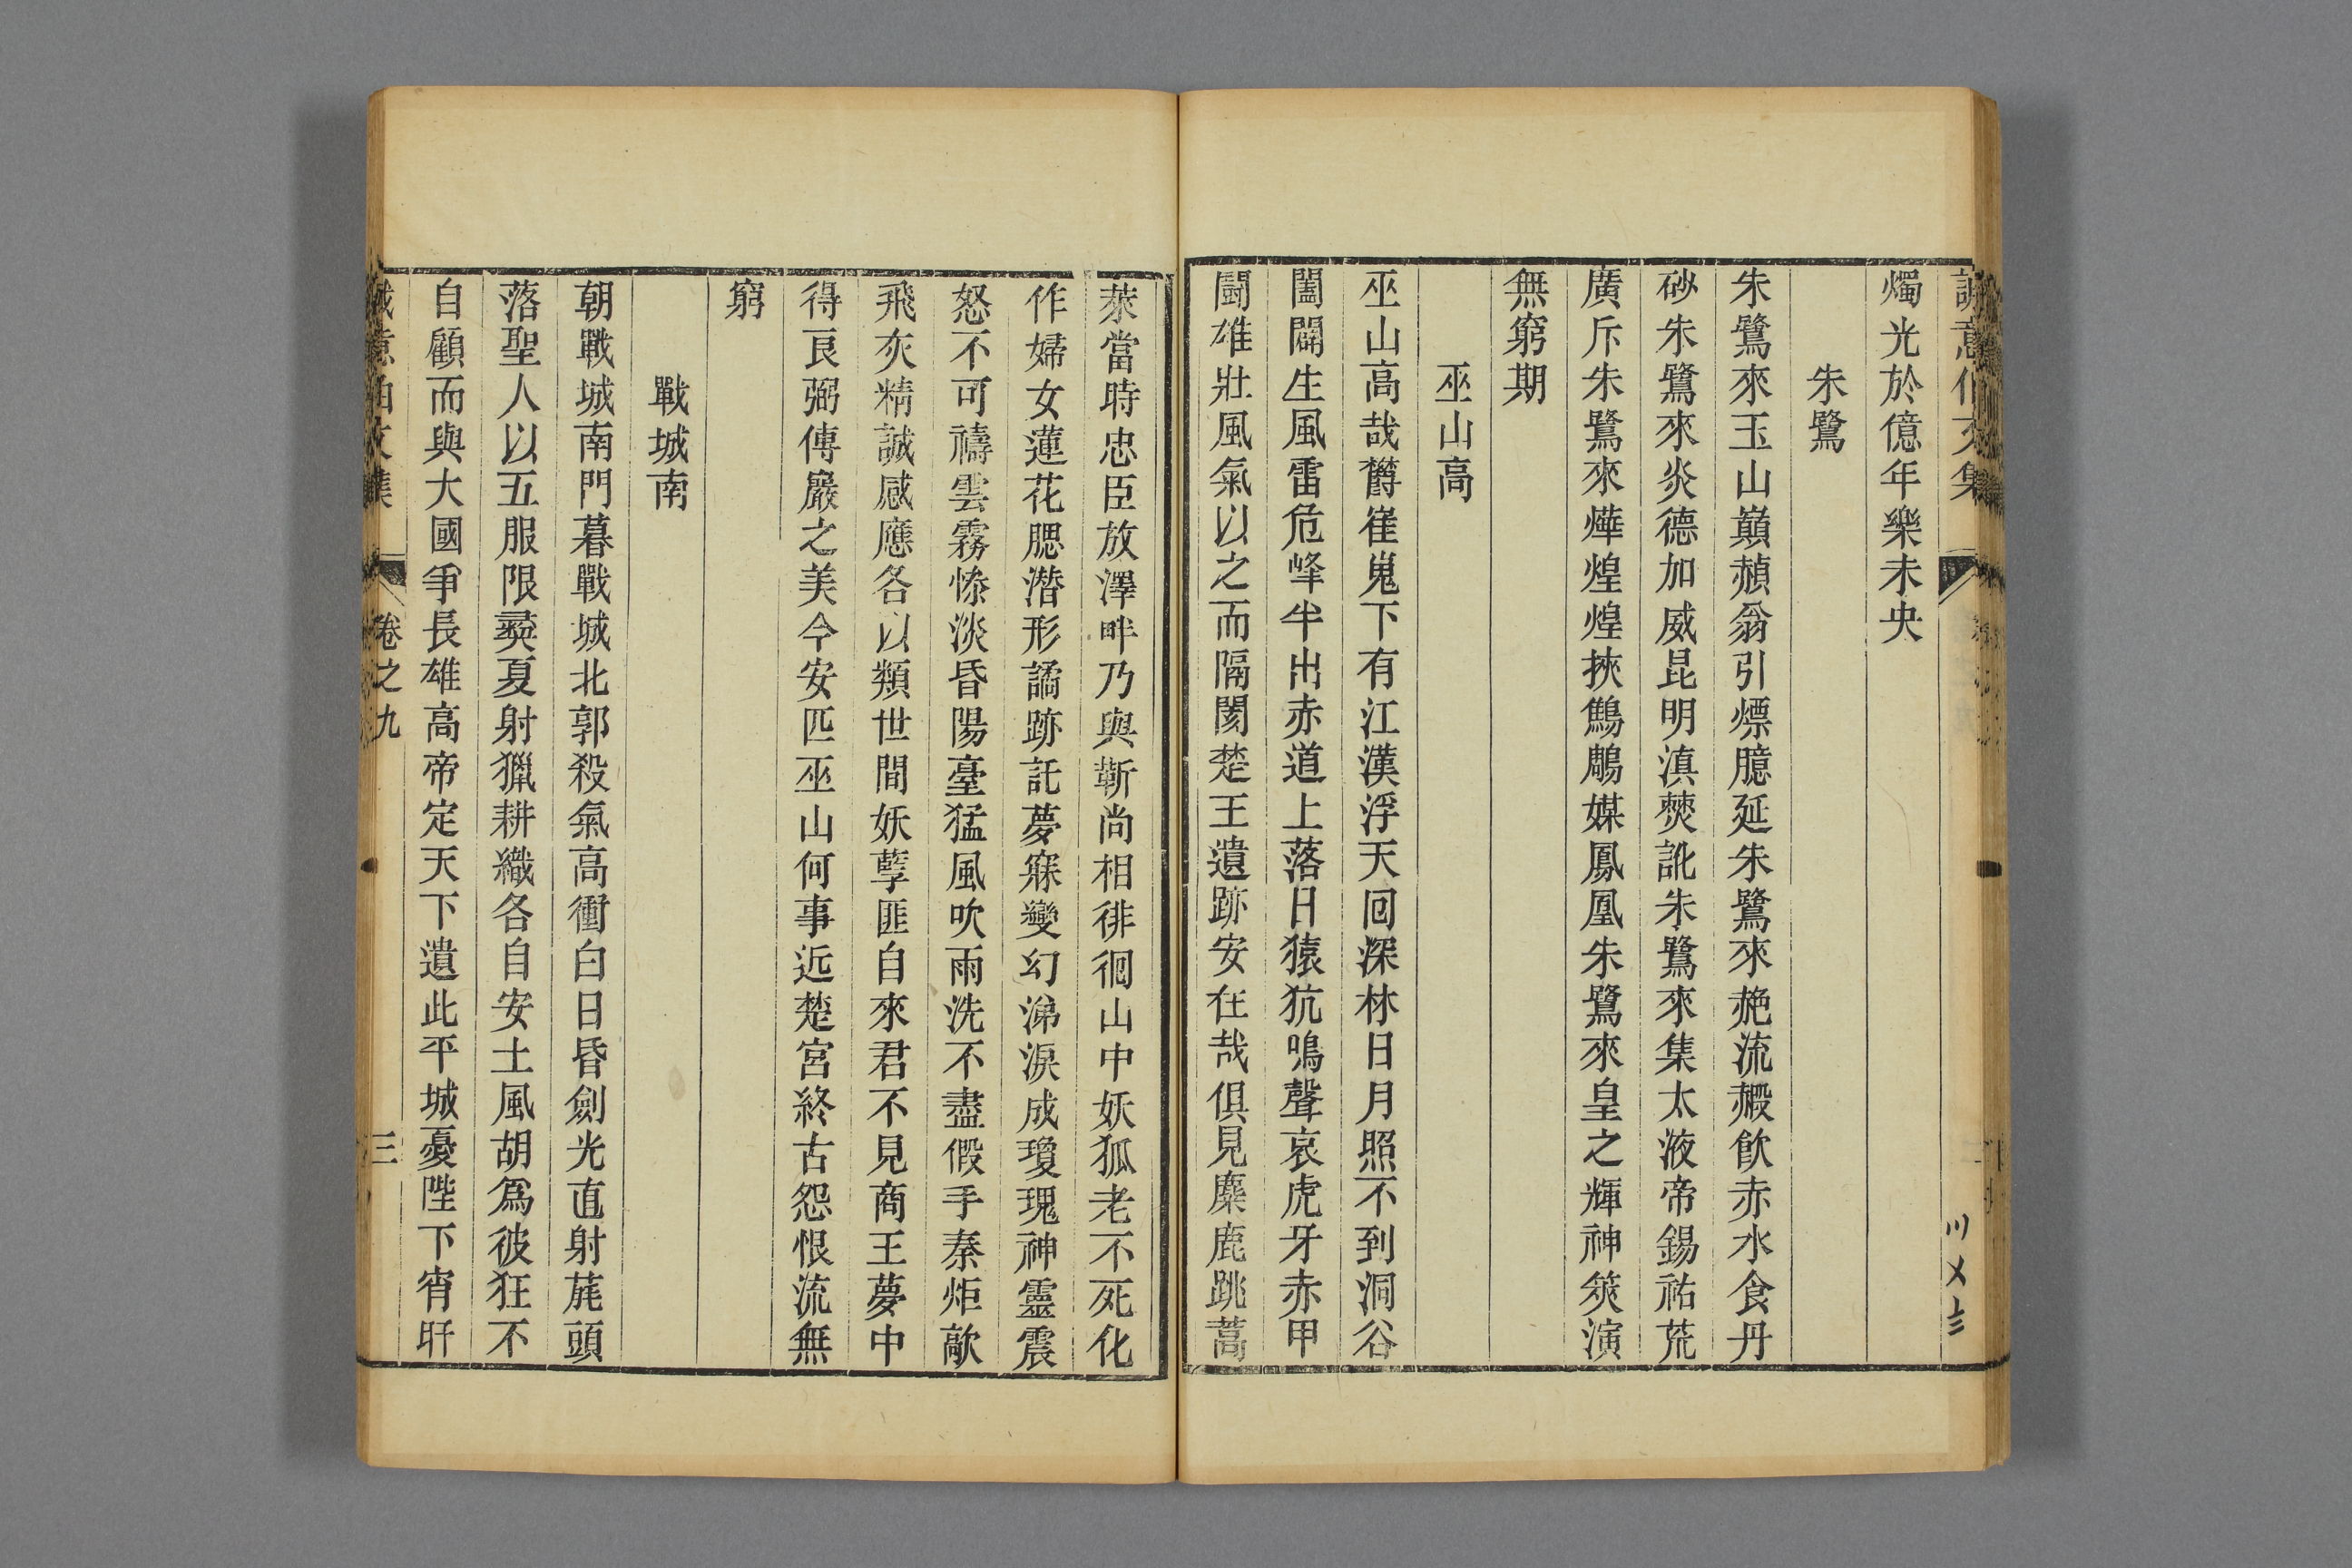 誠意伯文集
燭光於億年樂未央
朱鷺
朱鷺來玉山巔赬翁引熛臆延朱鷺來赩流赮飲赤水食丹
砂朱鷺來炎德加威昆明滇僰訛朱鷺來集太液帝錫祐荒
廣斥朱鷺來燁煌煌挾鷦鵰媒鳳凰朱鷺來皇之輝神筴演
無窮期
巫山高
巫山高哉欝崔嵬下有江漢浮天回深林日月照不到洞谷
闔闢生風雷危峰半出赤道上落日猿狖鳴聲哀虎牙赤甲
鬪雄壯風氣以之而隔閡楚王遺跡安在哉俱見麋鹿跳蒿
萊當時忠臣放澤畔乃與靳尚相徘徊山中妖狐老不死化
作婦女蓮花腮潛形譎跡託夢寐變幻涕淚成瓊瑰神靈震
怒不可禱雲霧慘淡昏陽臺猛風吹雨洗不盡假手秦炬歊
飛灰精誠感應各以類世間妖孽匪自來君不見商王夢中
得良弼傅巖之美今安匹巫山何事近楚宮終古怨恨流無
窮
戰城南
朝戰城南門暮戰城北郭殺氣高衝白日昏劍光直射旄頭
落聖人以五服限彛夏射獵耕織各自安土風胡爲彼狂不
自顧而與大國爭長雄高帝定天下遺此平城憂陛下宵旰
誠意伯文集 卷之九 三